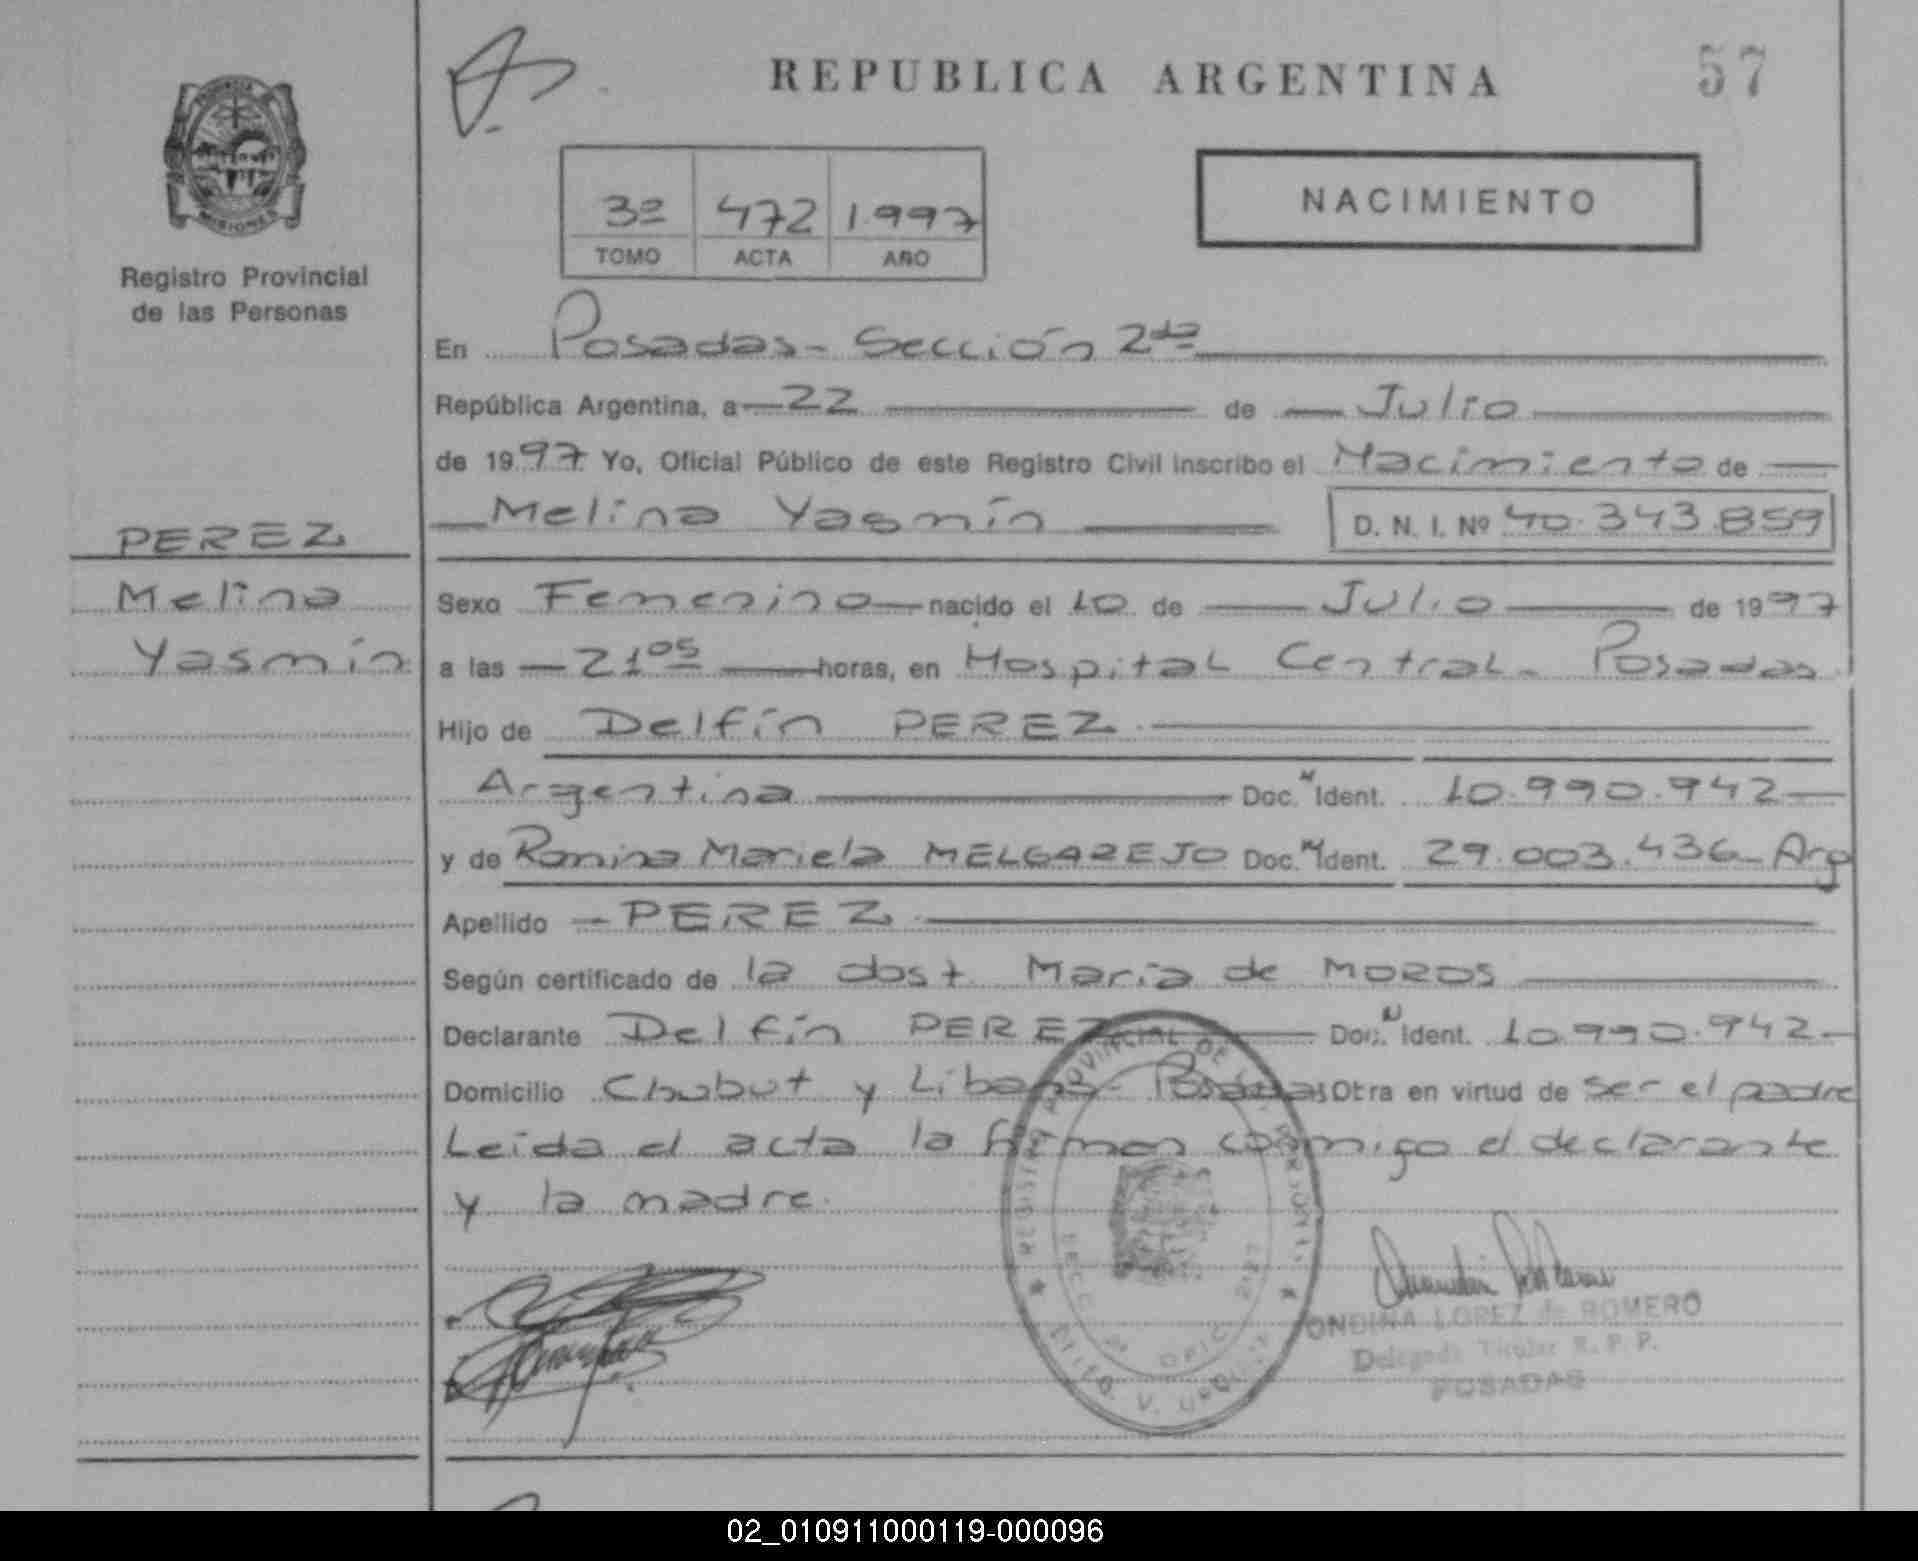 REPUBLICA ARGENTINA
57
MISIONES
Registro Provincial
de las Personas
3º 472 1.997
TOMO ACTA AÑO
NACIMIENTO
En Posadas - Sección 2da
República Argentina, a 22 de Julio
de 1997 Yo, Oficial Público de este Registro Civil inscribo el Nacimiento de
Melina Yasmín D. N. I. Nº 40.343.859
PEREZ
Melina
Yasmín
Sexo Femenino nacido el 10 de Julio de 1997
a las 21 05 horas, en Hospital Central - Posadas
Hijo de Delfín PEREZ
Argentina Doc. N Ident. 10.990.942
y de Romina Mariela MELGAREJO Doc. N Ident. 29.003.436 - Arg
Apellido PEREZ
Según certificado de la obst. María de MOROS
Declarante Delfín PEREZ Doc. N Ident. 10.990.942
Domicilio Chubut y Líbano - Posadas Otra en virtud de ser el padre
Leída el acta la firman conmigo el declarante
y la madre.
REGISTRO PROVINCIAL DE LAS PERSONAS
ONDINA LOPEZ de ROMERO
Delegada Titular R. P. P.
POSADAS
02_010911000119-000096